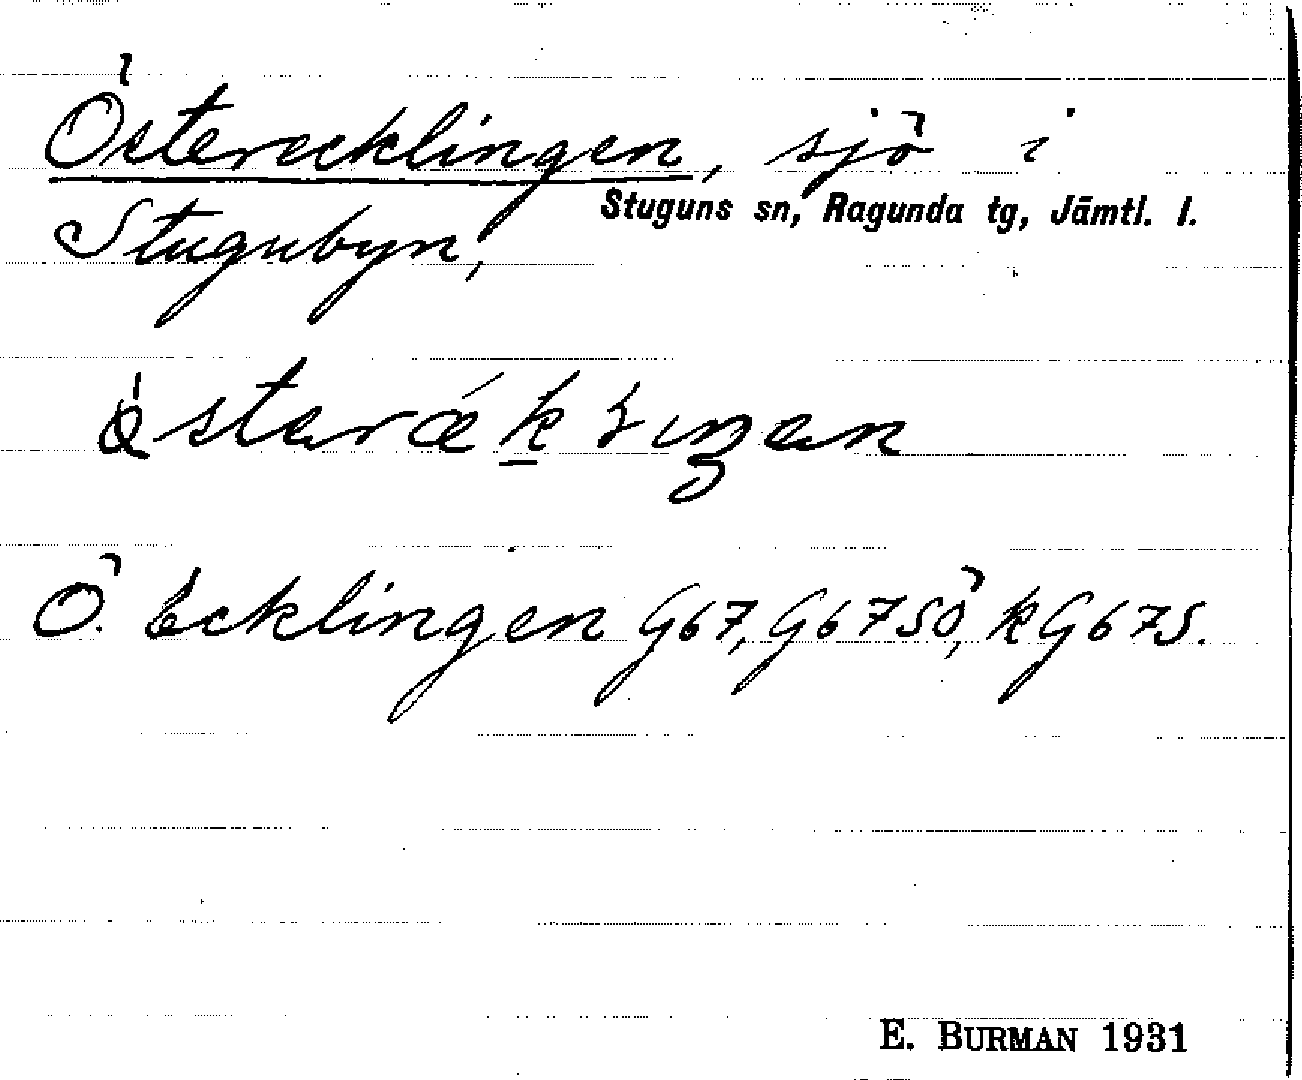 Österecklingen, sjö i
Stuguns sn, Ragunda tg, Jämtl. l.
Stugubyn,
Ö. Ecklingen G67, G67SÖ, kG67S.
E. BURMAN 1931